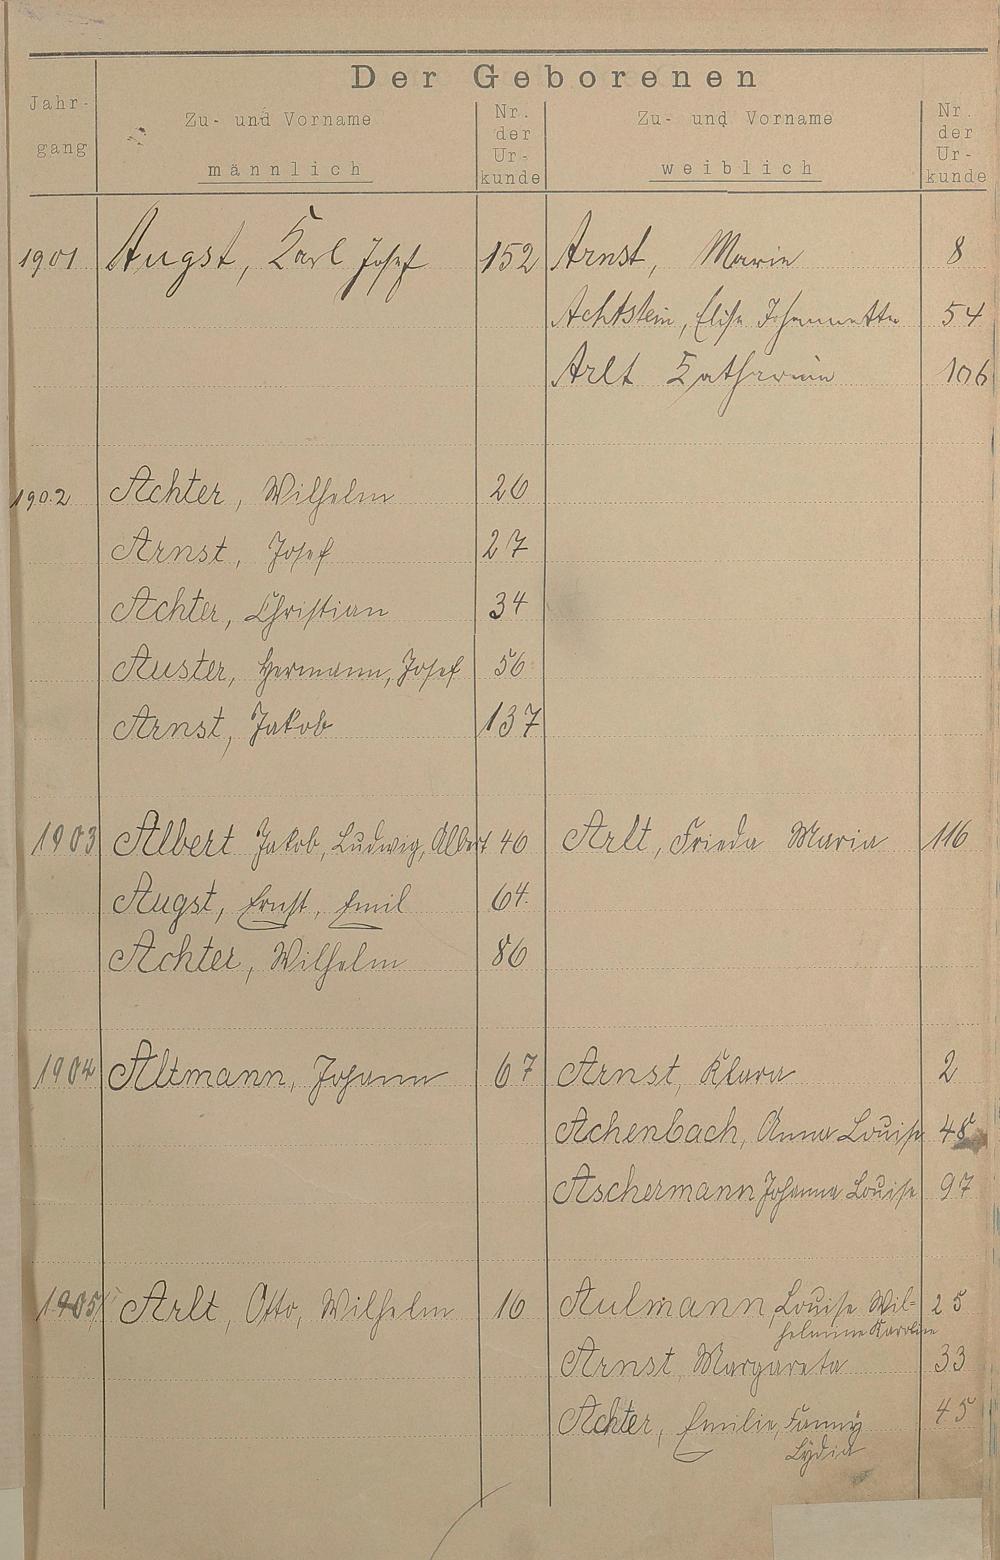 Der Geborenen
Jahr-
gang
Zu- und Vorname
männlich
Nr.
der
Ur-
kunde
Zu- und Vorname
weiblich
Nr.
der
Ur-
kunde
1901 Augst, Karl Josef 152 Arnst, Marie 8
Achtstein, Elise Johannette 54
Arlt Katharina 106
1902 Achter, Wilhelm 26
Arnst, Josef 27
Achter, Christian 34
Auster, Hermann, Josef 56
Arnst, Jakob 137
1903 Albert Jakob, Ludwig, Albert 40 Arlt, Frieda Maria 116
Augst, Ernst, Emil 64.
Achter, Wilhelm 86
1904 Altmann, Johann 67 Arnst, Klara 2
Achenbach, Anna Louise 48
Aschermann Johanna Louise 97
1905 Arlt, Otto, Wilhelm 16 Aulmann, Louise Wil- 25
helmine Karoline
Arnst, Margareta 33
Achter, Emilie, Fanny 45
Lydia